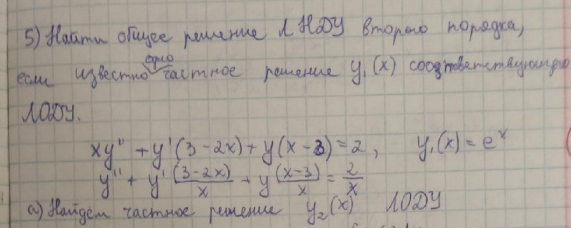 5) Найти общее решение ЛНДУ второго порядка,
если известно одно частное решение y₁(x) соответствующего
ЛОДУ.
xy'' + y'(3-2x) + y(x-3) = 2, y₁(x) = eˣ
y'' + y' (3-2x)/x + y (x-3)/x = 2/x
а) Найдём частное решение y₂(x) ЛОДУ